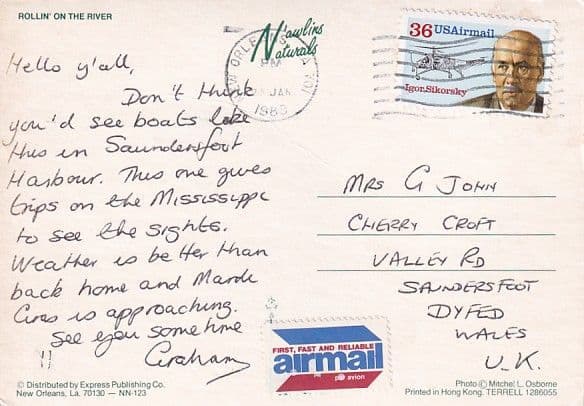 ROLLIN' ON THE RIVER
N'awlins
Naturals
NEW ORLEANS LA
PM
JAN
1989
36 USAirmail
Igor Sikorsky
Hello y'all,
Don't think
you'd see boats like
this in Saundersfoot
Harbour. This one gives
trips on the Mississippi
to see the sights.
Weather is better than
back home and Mardi
Gras is approaching.
See you sometime
Graham
MRS G JOHN
CHERRY CROFT
VALLEY RD
SAUNDERSFOOT
DYFED
WALES
U.K.
FIRST, FAST AND RELIABLE
airmail
par avion
© Distributed by Express Publishing Co.
New Orleans, La. 70130 — NN-123
Photo © Mitchel L. Osborne
Printed in Hong Kong. TERRELL 1286055